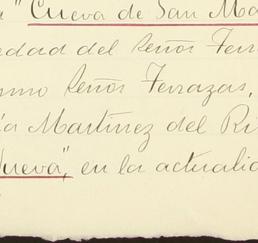 " Cueva de San Ma
edad del Señor Terr
smo Señor Terrazas,
ía Martínez del Ri
ueva", en la actualid